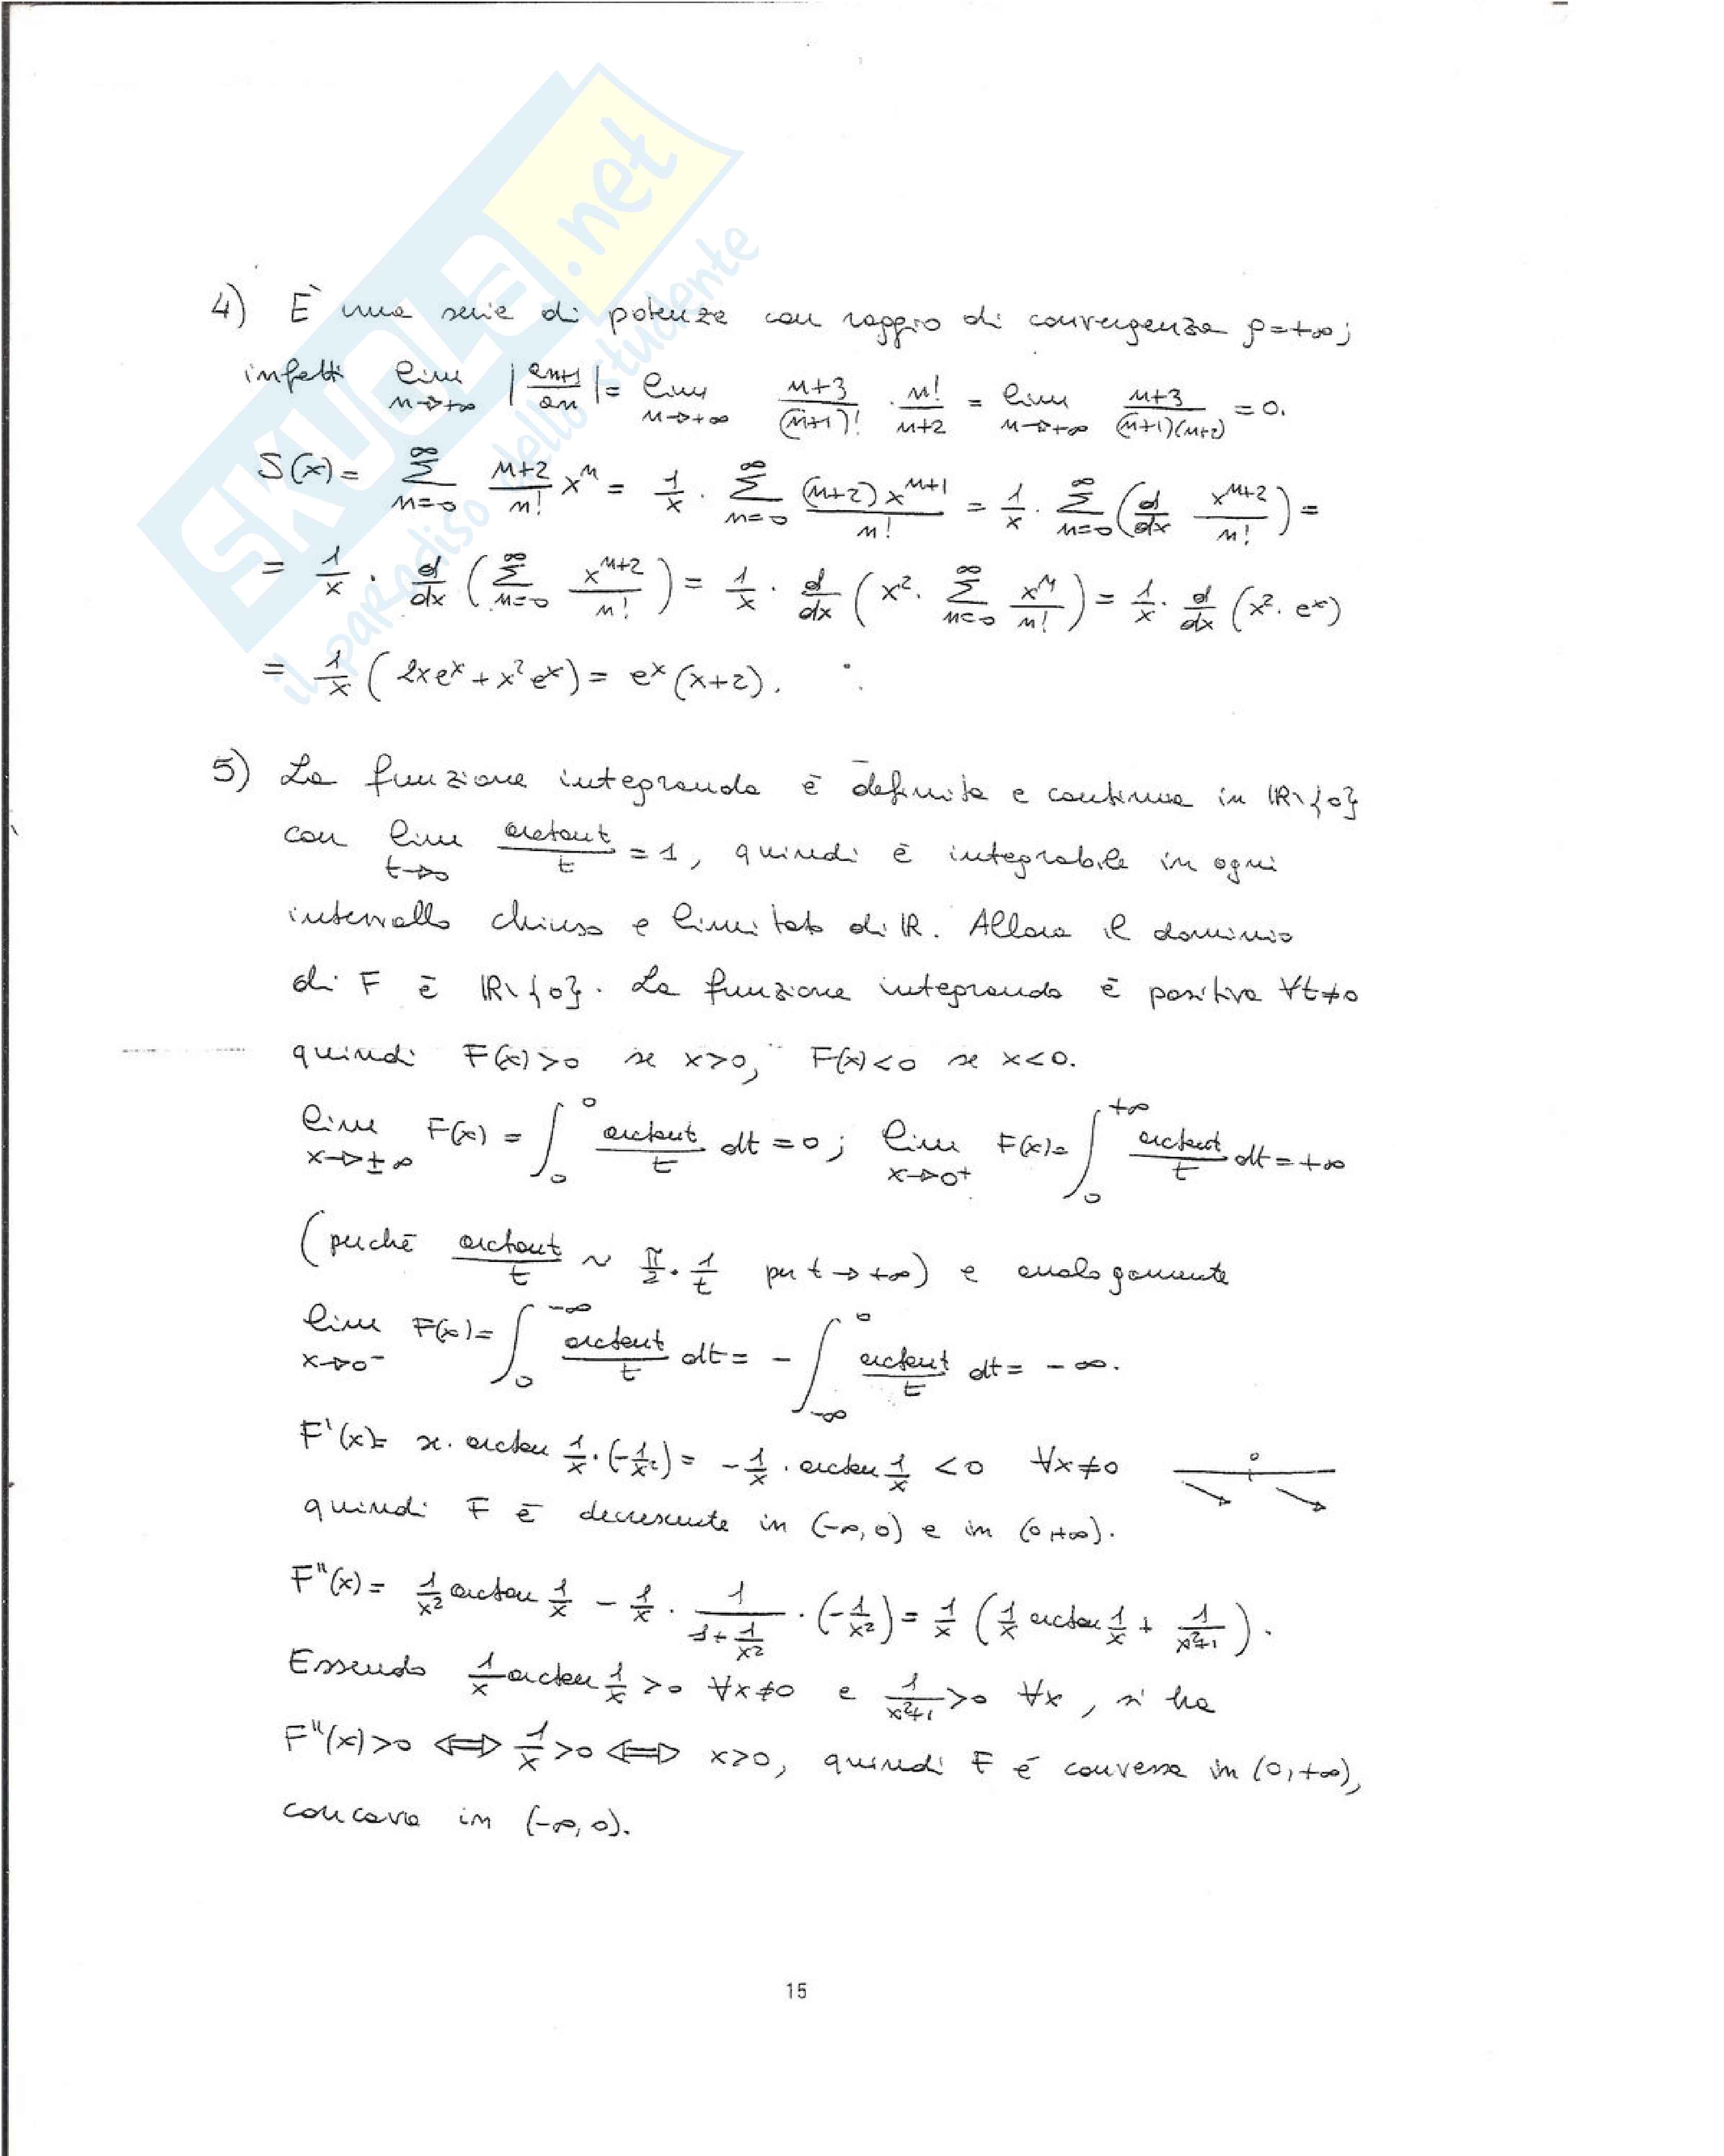 SKUOLA.net
il paradiso dello studente
4) È una serie di potenze con raggio di convergenza ρ=+∞;
infatti lim_{n→+∞} |a_{n+1}/a_n| = lim_{n→+∞} (n+3)/(n+1)! · n!/(n+2) = lim_{n→+∞} (n+3)/((n+1)(n+2)) = 0.
S(x) = ∑_{n=0}^{∞} (n+2)/n! x^n = 1/x · ∑_{n=0}^{∞} (n+2)x^{n+1}/n! = 1/x · ∑_{n=0}^{∞} (d/dx x^{n+2}/n!) =
= 1/x · d/dx (∑_{n=0}^{∞} x^{n+2}/n!) = 1/x · d/dx (x² · ∑_{n=0}^{∞} x^n/n!) = 1/x · d/dx (x² · e^x)
= 1/x (2xe^x + x²e^x) = e^x (x+2).
5) La funzione integranda è definita e continua in ℝ\{0}
con lim_{t→0} arctan t/t = 1, quindi è integrabile in ogni
intervallo chiuso e limitato di ℝ. Allora il dominio
di F è ℝ\{0}. La funzione integranda è positiva ∀t≠0
quindi F(x)>0 se x>0, F(x)<0 se x<0.
lim_{x→±∞} F(x) = ∫_0^0 arctan t/t dt = 0; lim_{x→0⁺} F(x) = ∫_0^{+∞} arctan t/t dt = +∞
(perché arctan t/t ~ π/2 · 1/t per t→+∞) e analogamente
lim_{x→0⁻} F(x) = ∫_0^{-∞} arctan t/t dt = - ∫_{-∞}^0 arctan t/t dt = -∞.
F'(x) = x · arctan 1/x · (-1/x²) = -1/x · arctan 1/x < 0 ∀x≠0 0
quindi F è decrescente in (-∞,0) e in (0,+∞).
F"(x) = 1/x² arctan 1/x - 1/x · 1/(1+1/x²) · (-1/x²) = 1/x (1/x arctan 1/x + 1/(x²+1)).
Essendo 1/x arctan 1/x > 0 ∀x≠0 e 1/(x²+1) > 0 ∀x, si ha
F"(x)>0 ⟺ 1/x>0 ⟺ x>0, quindi F è convessa in (0,+∞),
concava in (-∞,0).
15